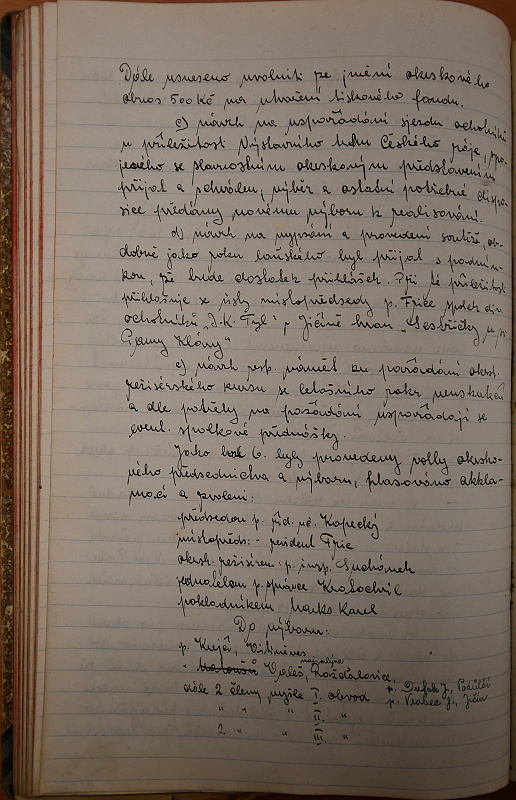 Dále usneseno uvolniti ze jmění okrskového
obnos 500 Kč na utvoření tiskového fondu.
c) návrh na uspořádání sjezdu ochotníků
u příležitosti Výstavního trhu Českého ráje, spo-
jeného se slavnostním okrskovým představením
přijat a schválen, výběr a ostatní potřebné dispo-
sice předány novému výboru k realisování.
d) návrh na vypsání a provedení soutěže, ob-
dobně jako roku loňského byl přijat s podmín-
kou, že bude dostatek přihlášek. Při té příležitosti
přihlašuje se ústy místopředsedy p. Friče spolek div.
ochotníků „J. K. Tyl" v Jičíně hrou „Sestřičky u sv.
Gemy
e) návrh resp. námět na pořádání okrsk.
režisérského kursu se letošního roku neuskuteční
a dle potřeby na požádání uspořádají se
event. spolkové přednášky.
Jako bod 6. byly provedeny volby okrsko-
vého předsednictva a výboru, hlasováno akkla-
mací a zvoleni:
předsedou p. říd. uč. Kopecký
místopředs: - president Fric
okrsk. režisérem: p. insp. Suchánek
jednatelem p. správce Kratochvíl
pokladníkem Karel
Do výboru:
p. Krejčí,
" Valeš, Rožďalovice,
dále 2 členy vyšle I. obvod p. J., p. Vrabec J., Jičín
" " " II. "
2 " " III. "